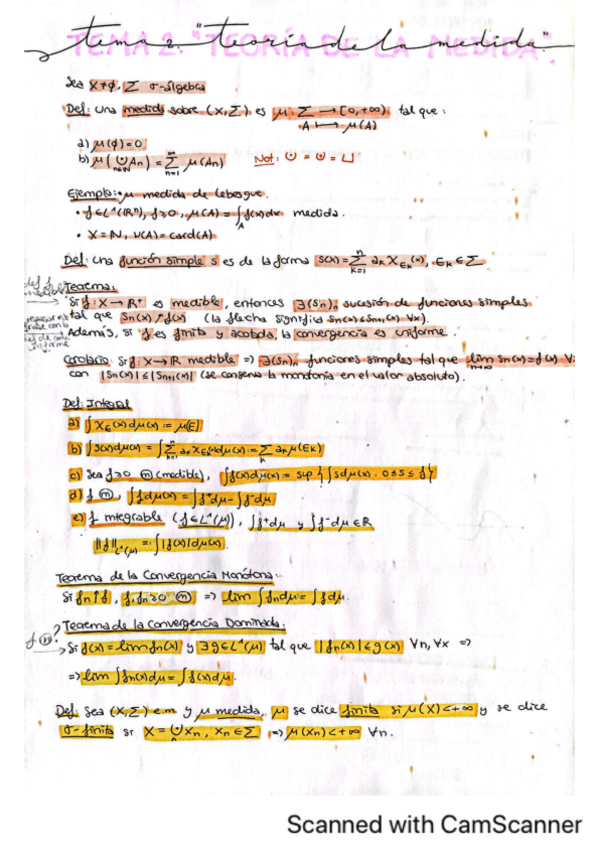 tema 2. "TEORÍA DE LA MEDIDA"
Sea X≠∅, Σ σ-álgebra
Def: Una medida sobre (X,Σ) es μ: Σ → [0,+∞) tal que:
A ↦ μ(A)
a) μ(∅)=0
b) μ(⨃_{n∈ℕ} An) = Σ_{n=1}^∞ μ(An) Not: ⨃ = ⨃ = ⊔
Ejemplo: • μ medida de Lebesgue.
• f∈L¹(ℝⁿ), f≥0, μ(A)=∫_A f(x)dx medida.
• X=ℕ, ν(A)=card(A)
Def: Una función simple s es de la forma s(x)=Σ_{k=1}^n a_k χ_{E_k}(x), E_k∈Σ
Teorema:
Si f: X→ℝ⁺ es medible, entonces ∃(Sn)n sucesión de funciones simples
tal que Sn(x)↗f(x) (la flecha significa Sn(x)≤Sn+1(x) ∀x).
Además, si f es finita y acotada, la convergencia es uniforme.
Corolario: Si f: X→ℝ medible ⇒ ∃(Sn)n funciones simples tal que lim_{n→∞} Sn(x)=f(x) ∀
con |Sn(x)|≤|Sn+1(x)| (se conserva la monotonía en el valor absoluto).
Def: Integral
a) ∫χ_E(x)dμ(x) := μ(E)
b) ∫s(x)dμ(x) = ∫Σ_{k=1}^n a_k χ_{E_k}(x)dμ(x) := Σ_k a_k μ(E_k)
c) Sea f≥0 ⓜ (medible), ∫f(x)dμ(x) := sup{∫s dμ : 0≤s≤f}
d) f ⓜ, ∫f dμ(x) = ∫f⁺dμ - ∫f⁻dμ
e) f integrable (f∈L¹(μ)), ∫f⁺dμ y ∫f⁻dμ ∈ℝ
‖f‖_{L¹(μ)} =: ∫|f(x)|dμ(x).
Teorema de la Convergencia Monótona:
Si fn↑f, f,fn≥0 ⓜ ⇒ lim ∫fn dμ = ∫f dμ.
Teorema de la Convergencia Dominada:
f ⓜ?
Si f(x)=lim fn(x) y ∃g∈L¹(μ) tal que |fn(x)|≤g(x) ∀n,∀x ⇒
⇒ lim ∫fn(x)dμ = ∫f(x)dμ.
Def: Sea (X,Σ) e.m y μ medida, μ se dice finita si μ(X)<+∞ y se dice
σ-finita si X=⋃Xn, Xn∈Σ ⇒ μ(Xn)<+∞ ∀n.
Scanned with CamScanner